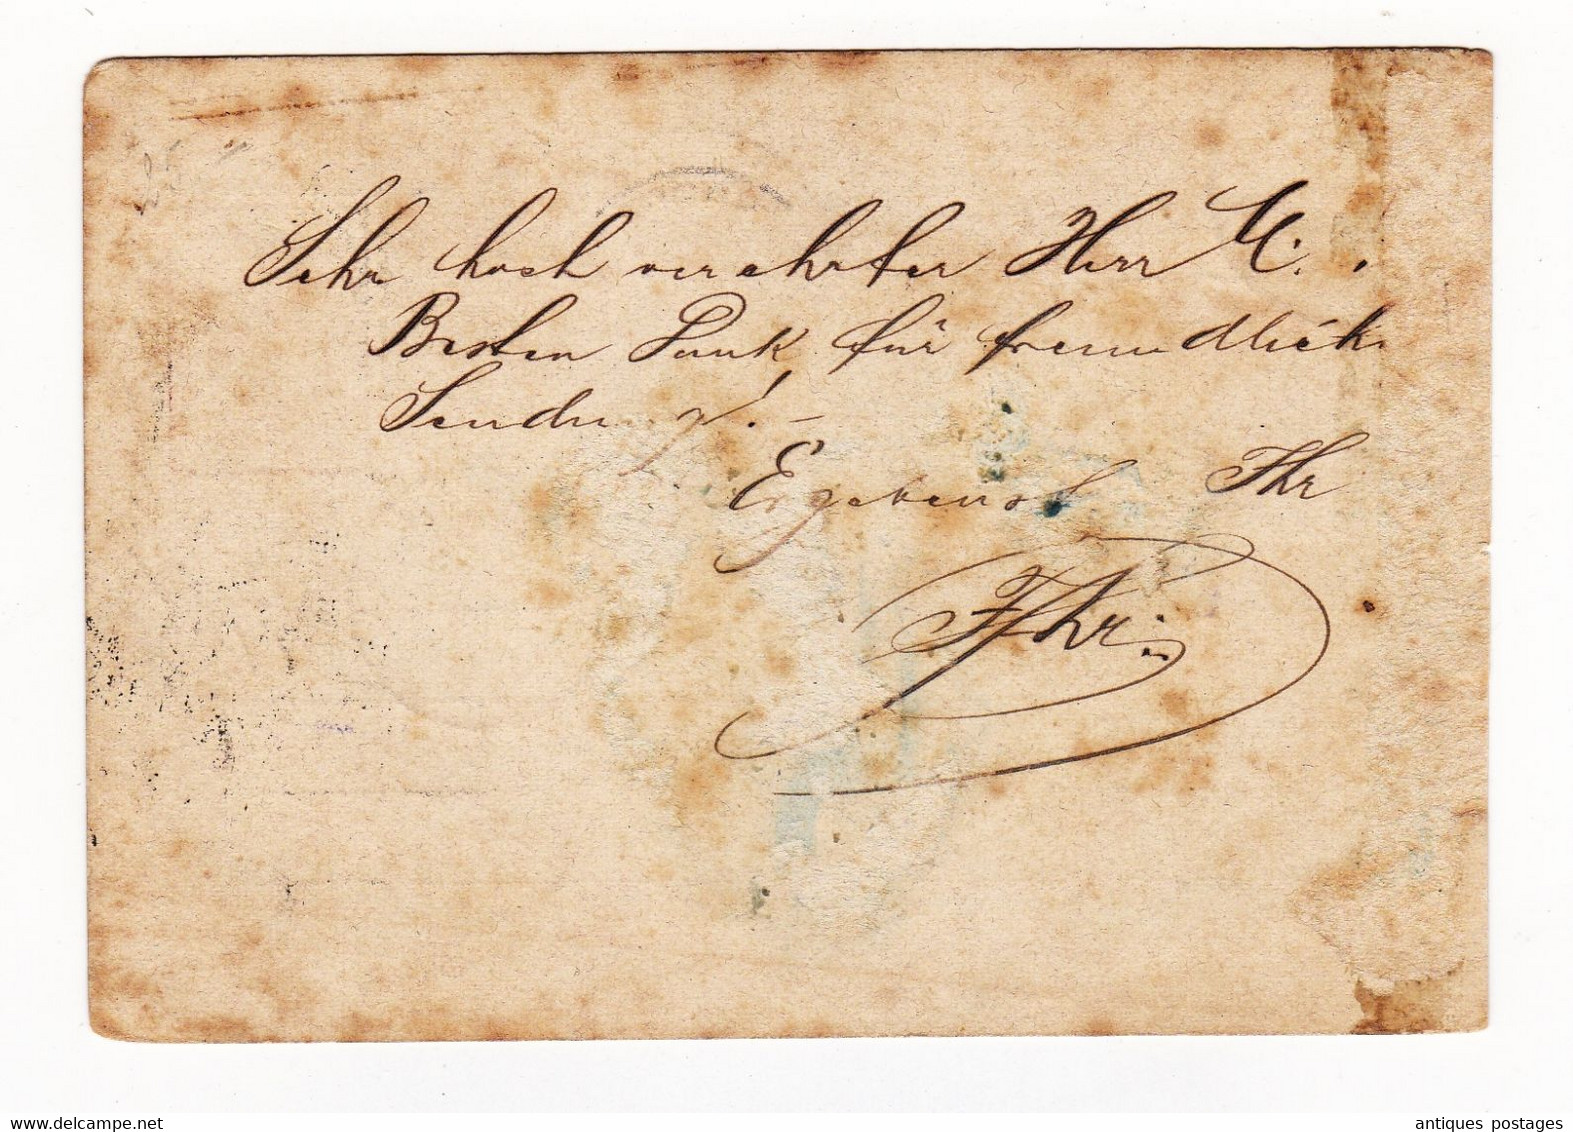 Sehr hoch verehrter Herr C.
Besten Dank für freundlich
Sendung! –
Ergebenst Ihr
delcampe.net
antiques postages